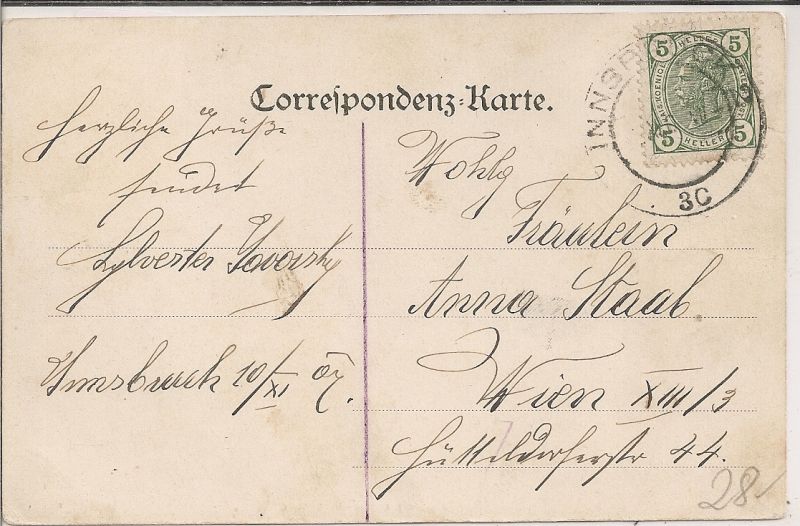 Correspondenz-Karte.
Herzliche Grüße
sendet
Sylvester
Innsbruck 10/XI 07.
Wohlg
Fräulein
Anna Staab
Wien XIII/3
Hütteldorferstr 44.
28
5 HELLER 5
5 HELLER 5
INNSBRUCK
3C